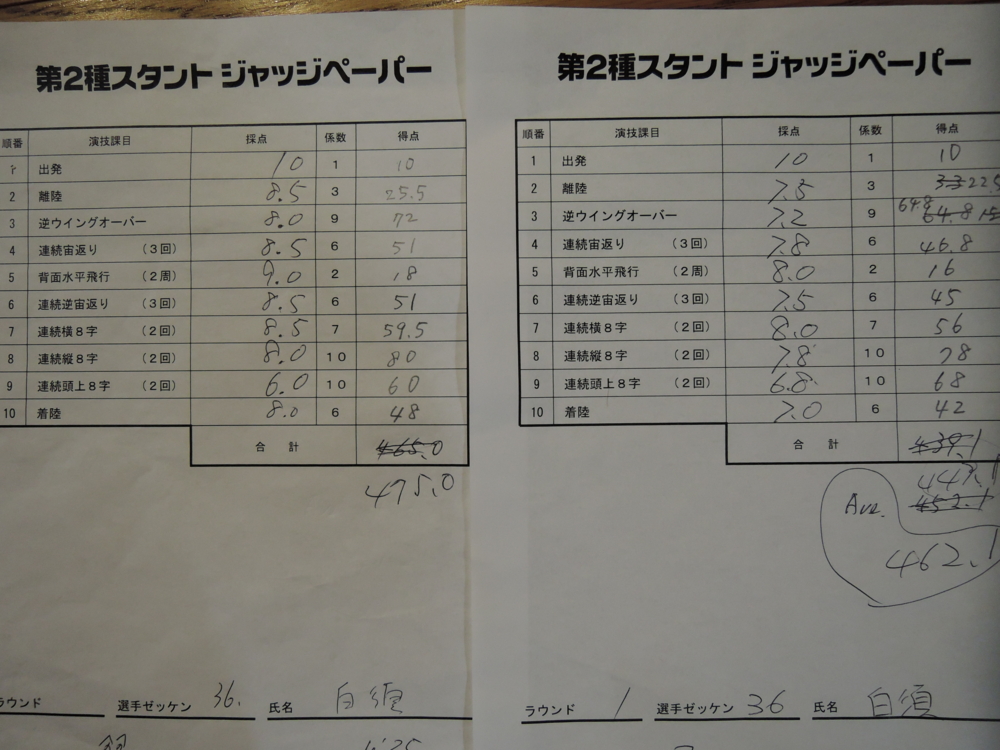 第2種スタント ジャッジペーパー
順番 演技課目 採点 係数 得点
1 出発 10 1 10
2 離陸 8.5 3 25.5
3 逆ウイングオーバー 8.0 9 72
4 連続宙返り (3回) 8.5 6 51
5 背面水平飛行 (2周) 9.0 2 18
6 連続逆宙返り (3回) 8.5 6 51
7 連続横8字 (2回) 8.5 7 59.5
8 連続縦8字 (2回) 8.0 10 80
9 連続頭上8字 (2回) 6.0 10 60
10 着陸 8.0 6 48
合計 465.0
475.0
ラウンド 選手ゼッケン 36. 氏名 白須
第2種スタント ジャッジペーパー
順番 演技課目 採点 係数 得点
1 出発 10 1 10
2 離陸 7.5 3 33 22.5
3 逆ウイングオーバー 7.2 9 64.8 64.8
4 連続宙返り (3回) 7.8 6 46.8
5 背面水平飛行 (2周) 8.0 2 16
6 連続逆宙返り (3回) 7.5 6 45
7 連続横8字 (2回) 8.0 7 56
8 連続縦8字 (2回) 7.8 10 78
9 連続頭上8字 (2回) 6.8 10 68
10 着陸 7.0 6 42
合計 439.1
449.1
Ave. 452.1
462.1
ラウンド 1 選手ゼッケン 36 氏名 白須